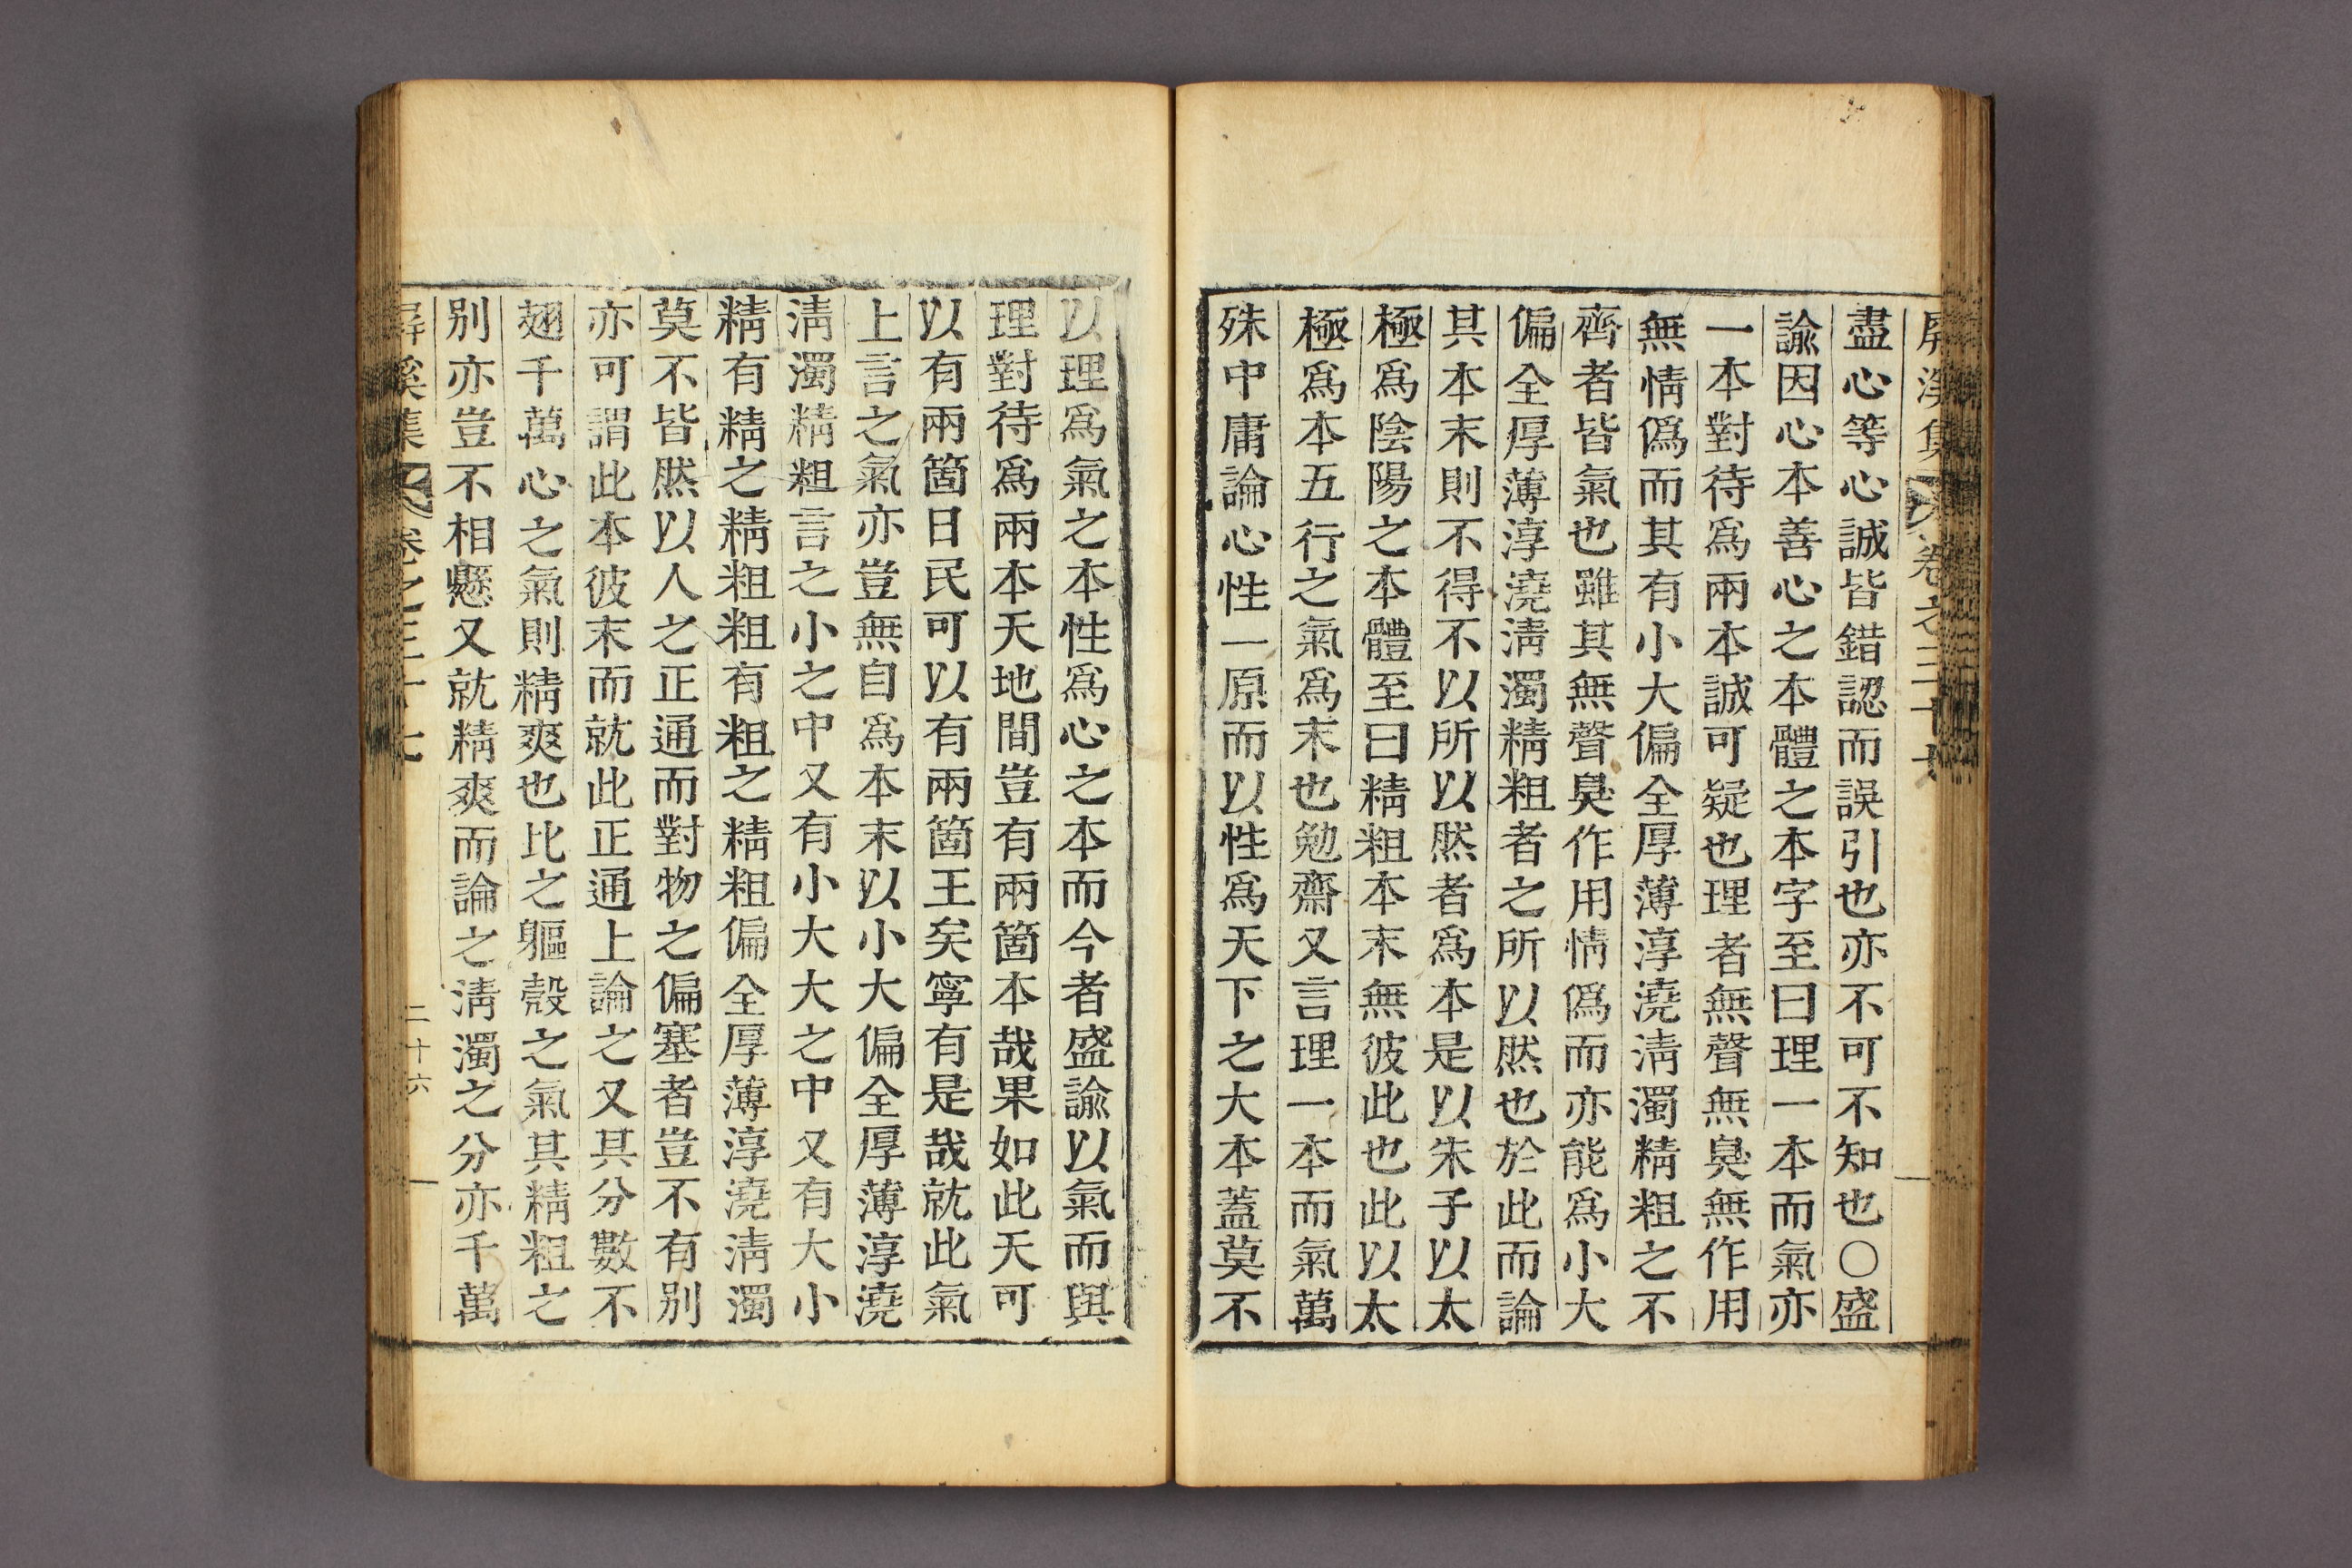 屏溪集 卷之三十七
盡心等心誠皆錯認而誤引也亦不可不知也○盛
諭因心本善心之本體之本字至曰理一本而氣亦
一本對待爲兩本誠可疑也理者無聲無臭無作用
無情僞而其有小大偏全厚薄淳澆淸濁精粗之不
齊者皆氣也雖其無聲臭作用情僞而亦能爲小大
偏全厚薄淳澆淸濁精粗者之所以然也於此而論
其本末則不得不以所以然者爲本是以朱子以太
極爲陰陽之本體至曰精粗本末無彼此也此以太
極爲本五行之氣爲末也勉齋又言理一本而氣萬
殊中庸論心性一原而以性爲天下之大本蓋莫不
以理爲氣之本性爲心之本而今者盛諭以氣而與
理對待爲兩本天地間豈有兩箇本哉果如此天可
以有兩箇日民可以有兩箇王矣寧有是哉就此氣
上言之氣亦豈無自爲本末以小大偏全厚薄淳澆
淸濁精粗言之小之中又有小大大之中又有大小
精有精之精粗粗有粗之精粗偏全厚薄淳澆淸濁
莫不皆然以人之正通而對物之偏塞者豈不有別
亦可謂此本彼末而就此正通上論之又其分數不
翅千萬心之氣則精爽也比之軀殼之氣其精粗之
別亦豈不相懸又就精爽而論之淸濁之分亦千萬
屏溪集 卷之三十七 二十六